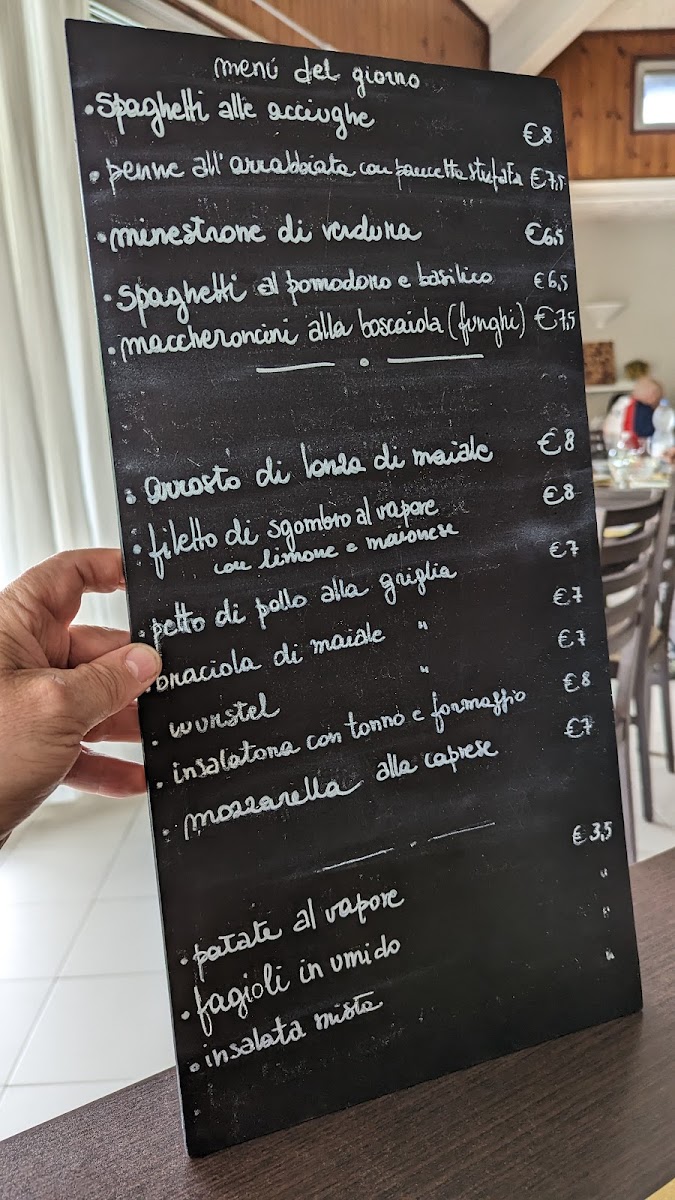 menú del giorno
• spaghetti alle acciughe €8
• penne all'arrabbiata con pancetta stufata €7,5
• minestrone di verdura €6,5
• spaghetti al pomodoro e basilico €6,5
• maccheroncini alla boscaiola (funghi) €7,5
• arrosto di lonza di maiale €8
• filetto di sgombro al vapore €8
con limone e maionese
• petto di pollo alla griglia €7
• braciola di maiale " €7
• wurstel " €7
• insalatona con tonno e formaggio €8
• mozzarella alla caprese €7
• patate al vapore €3,5
• fagioli in umido "
• insalata mista "
• "